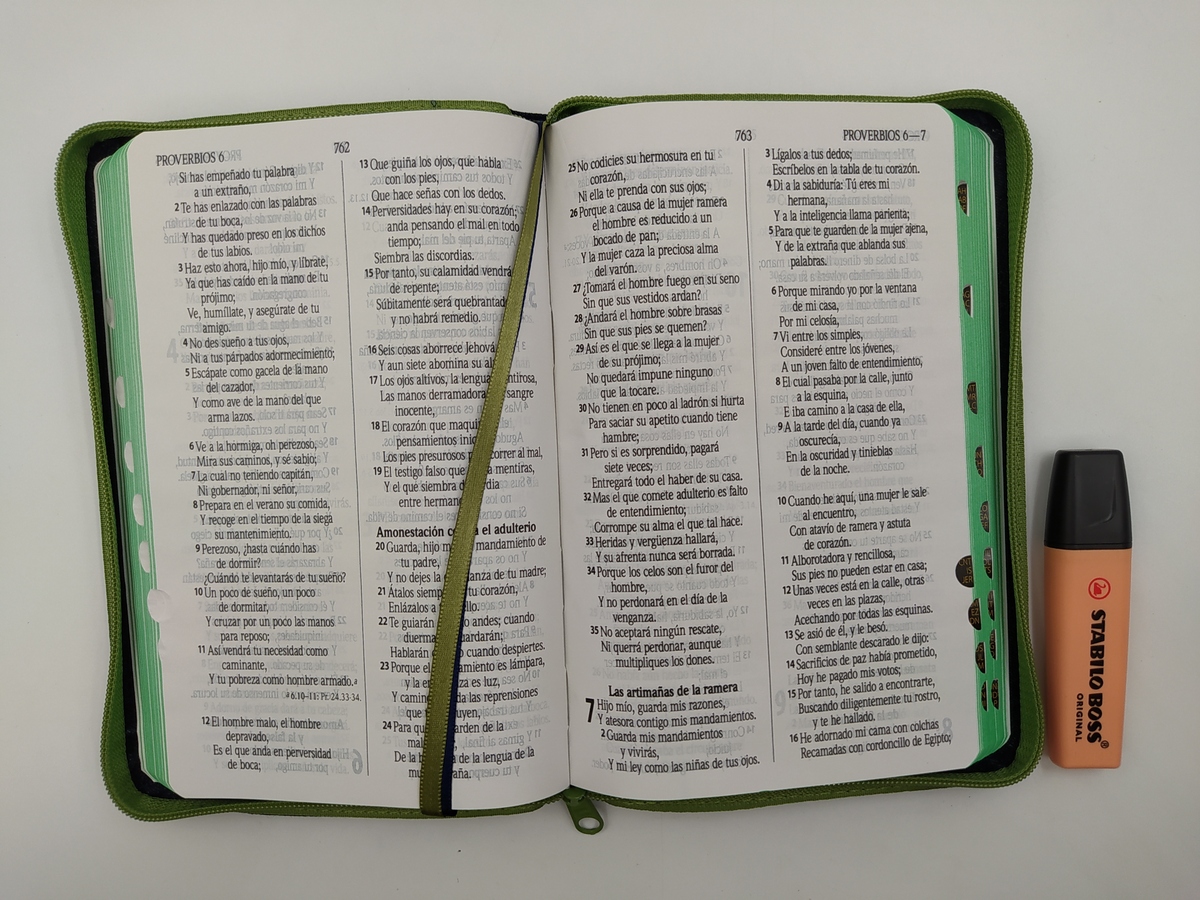 PROVERBIOS 6
762
Si has empeñado tu palabra
a un extraño,
2 Te has enlazado con las palabras
de tu boca,
Y has quedado preso en los dichos
de tus labios.
3 Haz esto ahora, hijo mío, y líbrate,
Ya que has caído en la mano de tu
prójimo;
Ve, humíllate, y asegúrate de tu
amigo.
4 No des sueño a tus ojos,
Ni a tus párpados adormecimiento;
5 Escápate como gacela de la mano
del cazador,
Y como ave de la mano del que
arma lazos.
6 Ve a la hormiga, oh perezoso,
Mira sus caminos, y sé sabio;
7 La cual no teniendo capitán,
Ni gobernador, ni señor,
8 Prepara en el verano su comida,
Y recoge en el tiempo de la siega
su mantenimiento.
9 Perezoso, ¿hasta cuándo has
de dormir?
¿Cuándo te levantarás de tu sueño?
10 Un poco de sueño, un poco
de dormitar,
Y cruzar por un poco las manos
para reposo;
11 Así vendrá tu necesidad como
caminante,
Y tu pobreza como hombre armado.a
a 6.10–11: Pr. 24.33-34.
12 El hombre malo, el hombre
depravado,
Es el que anda en perversidad
de boca;
13 Que guiña los ojos, que habla
con los pies,
Que hace señas con los dedos.
14 Perversidades hay en su corazón;
anda pensando el mal en todo
tiempo;
Siembra las discordias.
15 Por tanto, su calamidad vendrá
de repente;
Súbitamente será quebrantad
y no habrá remedio.
16 Seis cosas aborrece Jehová
Y aun siete abomina su al
17 Los ojos altivos, la lengua entirosa,
Las manos derramadora sangre
inocente,
18 El corazón que maqui
pensamientos inic
Los pies presurosos correr al mal,
19 El testigo falso que mentiras,
Y el que siembra dia
entre herman
Amonestación a el adulterio
20 Guarda, hijo m mandamiento de
tu padre,
Y no dejes la anza de tu madre;
21 Átalos siemp tu corazón,
Enlázalos a llo.
22 Te guiarán andes; cuando
duerma uardarán;
Hablarán cuando despiertes.
23 Porque el amiento es lámpara,
y la e za es luz,
Y camin da las reprensiones
que t uyen,
24 Para qu arden de la
mal
De la b de la lengua de la
mu aña.
763
PROVERBIOS 6—7
25 No codicies su hermosura en tu
corazón,
Ni ella te prenda con sus ojos;
26 Porque a causa de la mujer ramera
el hombre es reducido a un
bocado de pan;
Y la mujer caza la preciosa alma
del varón.
27 ¿Tomará el hombre fuego en su seno
Sin que sus vestidos ardan?
28 ¿Andará el hombre sobre brasas
Sin que sus pies se quemen?
29 Así es el que se llega a la mujer
de su prójimo;
No quedará impune ninguno
que la tocare.
30 No tienen en poco al ladrón si hurta
Para saciar su apetito cuando tiene
hambre;
31 Pero si es sorprendido, pagará
siete veces;
Entregará todo el haber de su casa.
32 Mas el que comete adulterio es falto
de entendimiento;
Corrompe su alma el que tal hace.
33 Heridas y vergüenza hallará,
Y su afrenta nunca será borrada.
34 Porque los celos son el furor del
hombre,
Y no perdonará en el día de la
venganza.
35 No aceptará ningún rescate,
Ni querrá perdonar, aunque
multipliques los dones.
Las artimañas de la ramera
7 Hijo mío, guarda mis razones,
Y atesora contigo mis mandamientos.
2 Guarda mis mandamientos
y vivirás,
Y mi ley como las niñas de tus ojos.
3 Lígalos a tus dedos;
Escríbelos en la tabla de tu corazón.
4 Di a la sabiduría: Tú eres mi
hermana,
Y a la inteligencia llama parienta;
5 Para que te guarden de la mujer ajena,
Y de la extraña que ablanda sus
palabras.
6 Porque mirando yo por la ventana
de mi casa,
Por mi celosía,
7 Vi entre los simples,
Consideré entre los jóvenes,
A un joven falto de entendimiento,
8 El cual pasaba por la calle, junto
a la esquina,
E iba camino a la casa de ella,
9 A la tarde del día, cuando ya
oscurecía,
En la oscuridad y tinieblas
de la noche.
10 Cuando he aquí, una mujer le sale
al encuentro,
Con atavío de ramera y astuta
de corazón.
11 Alborotadora y rencillosa,
Sus pies no pueden estar en casa;
12 Unas veces está en la calle, otras
veces en las plazas,
Acechando por todas las esquinas.
13 Se asió de él, y le besó.
Con semblante descarado le dijo:
14 Sacrificios de paz había prometido,
Hoy he pagado mis votos;
15 Por tanto, he salido a encontrarte,
Buscando diligentemente tu rostro,
y te he hallado.
16 He adornado mi cama con colchas
Recamadas con cordoncillo de Egipto;
STABILO BOSS®
ORIGINAL